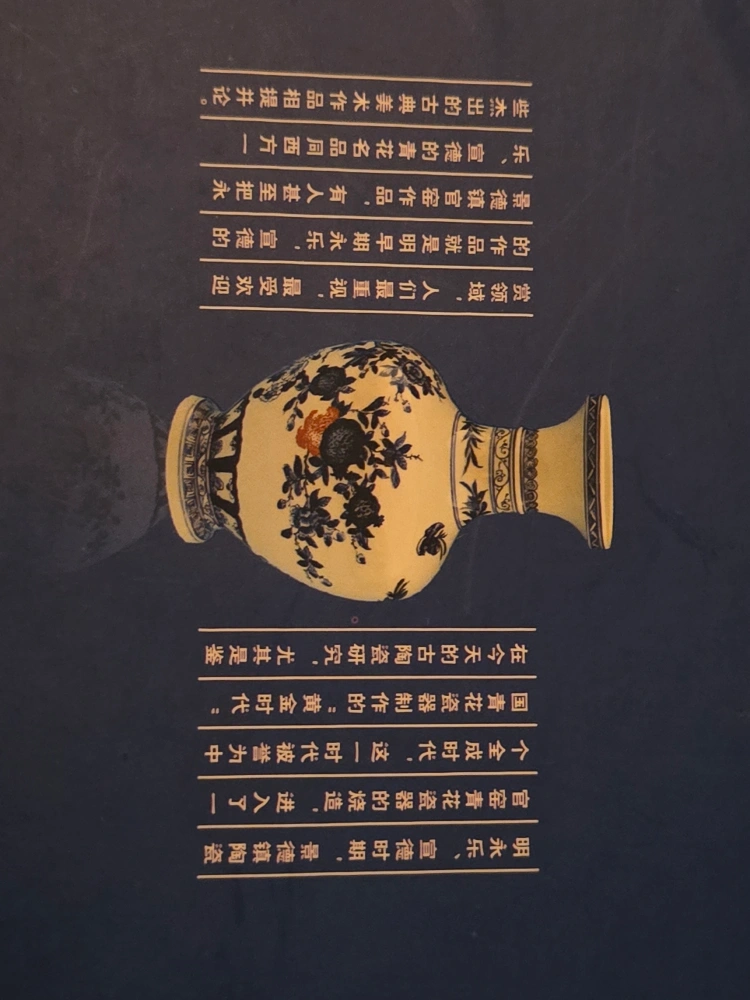 明永乐、宣德时期，景德镇陶瓷
官窑青花瓷器的烧造，进入了一
个全成时代，这一时代被誉为中
国青花瓷器制作的“黄金时代”
在今天的古陶瓷研究，尤其是鉴
赏领域，人们最重视，最受欢迎
的作品就是明早期永乐，宣德的
景德镇官窑作品，有人甚至把永
乐、宣德的青花名品同西方一
些杰出的古典美术作品相提并论。